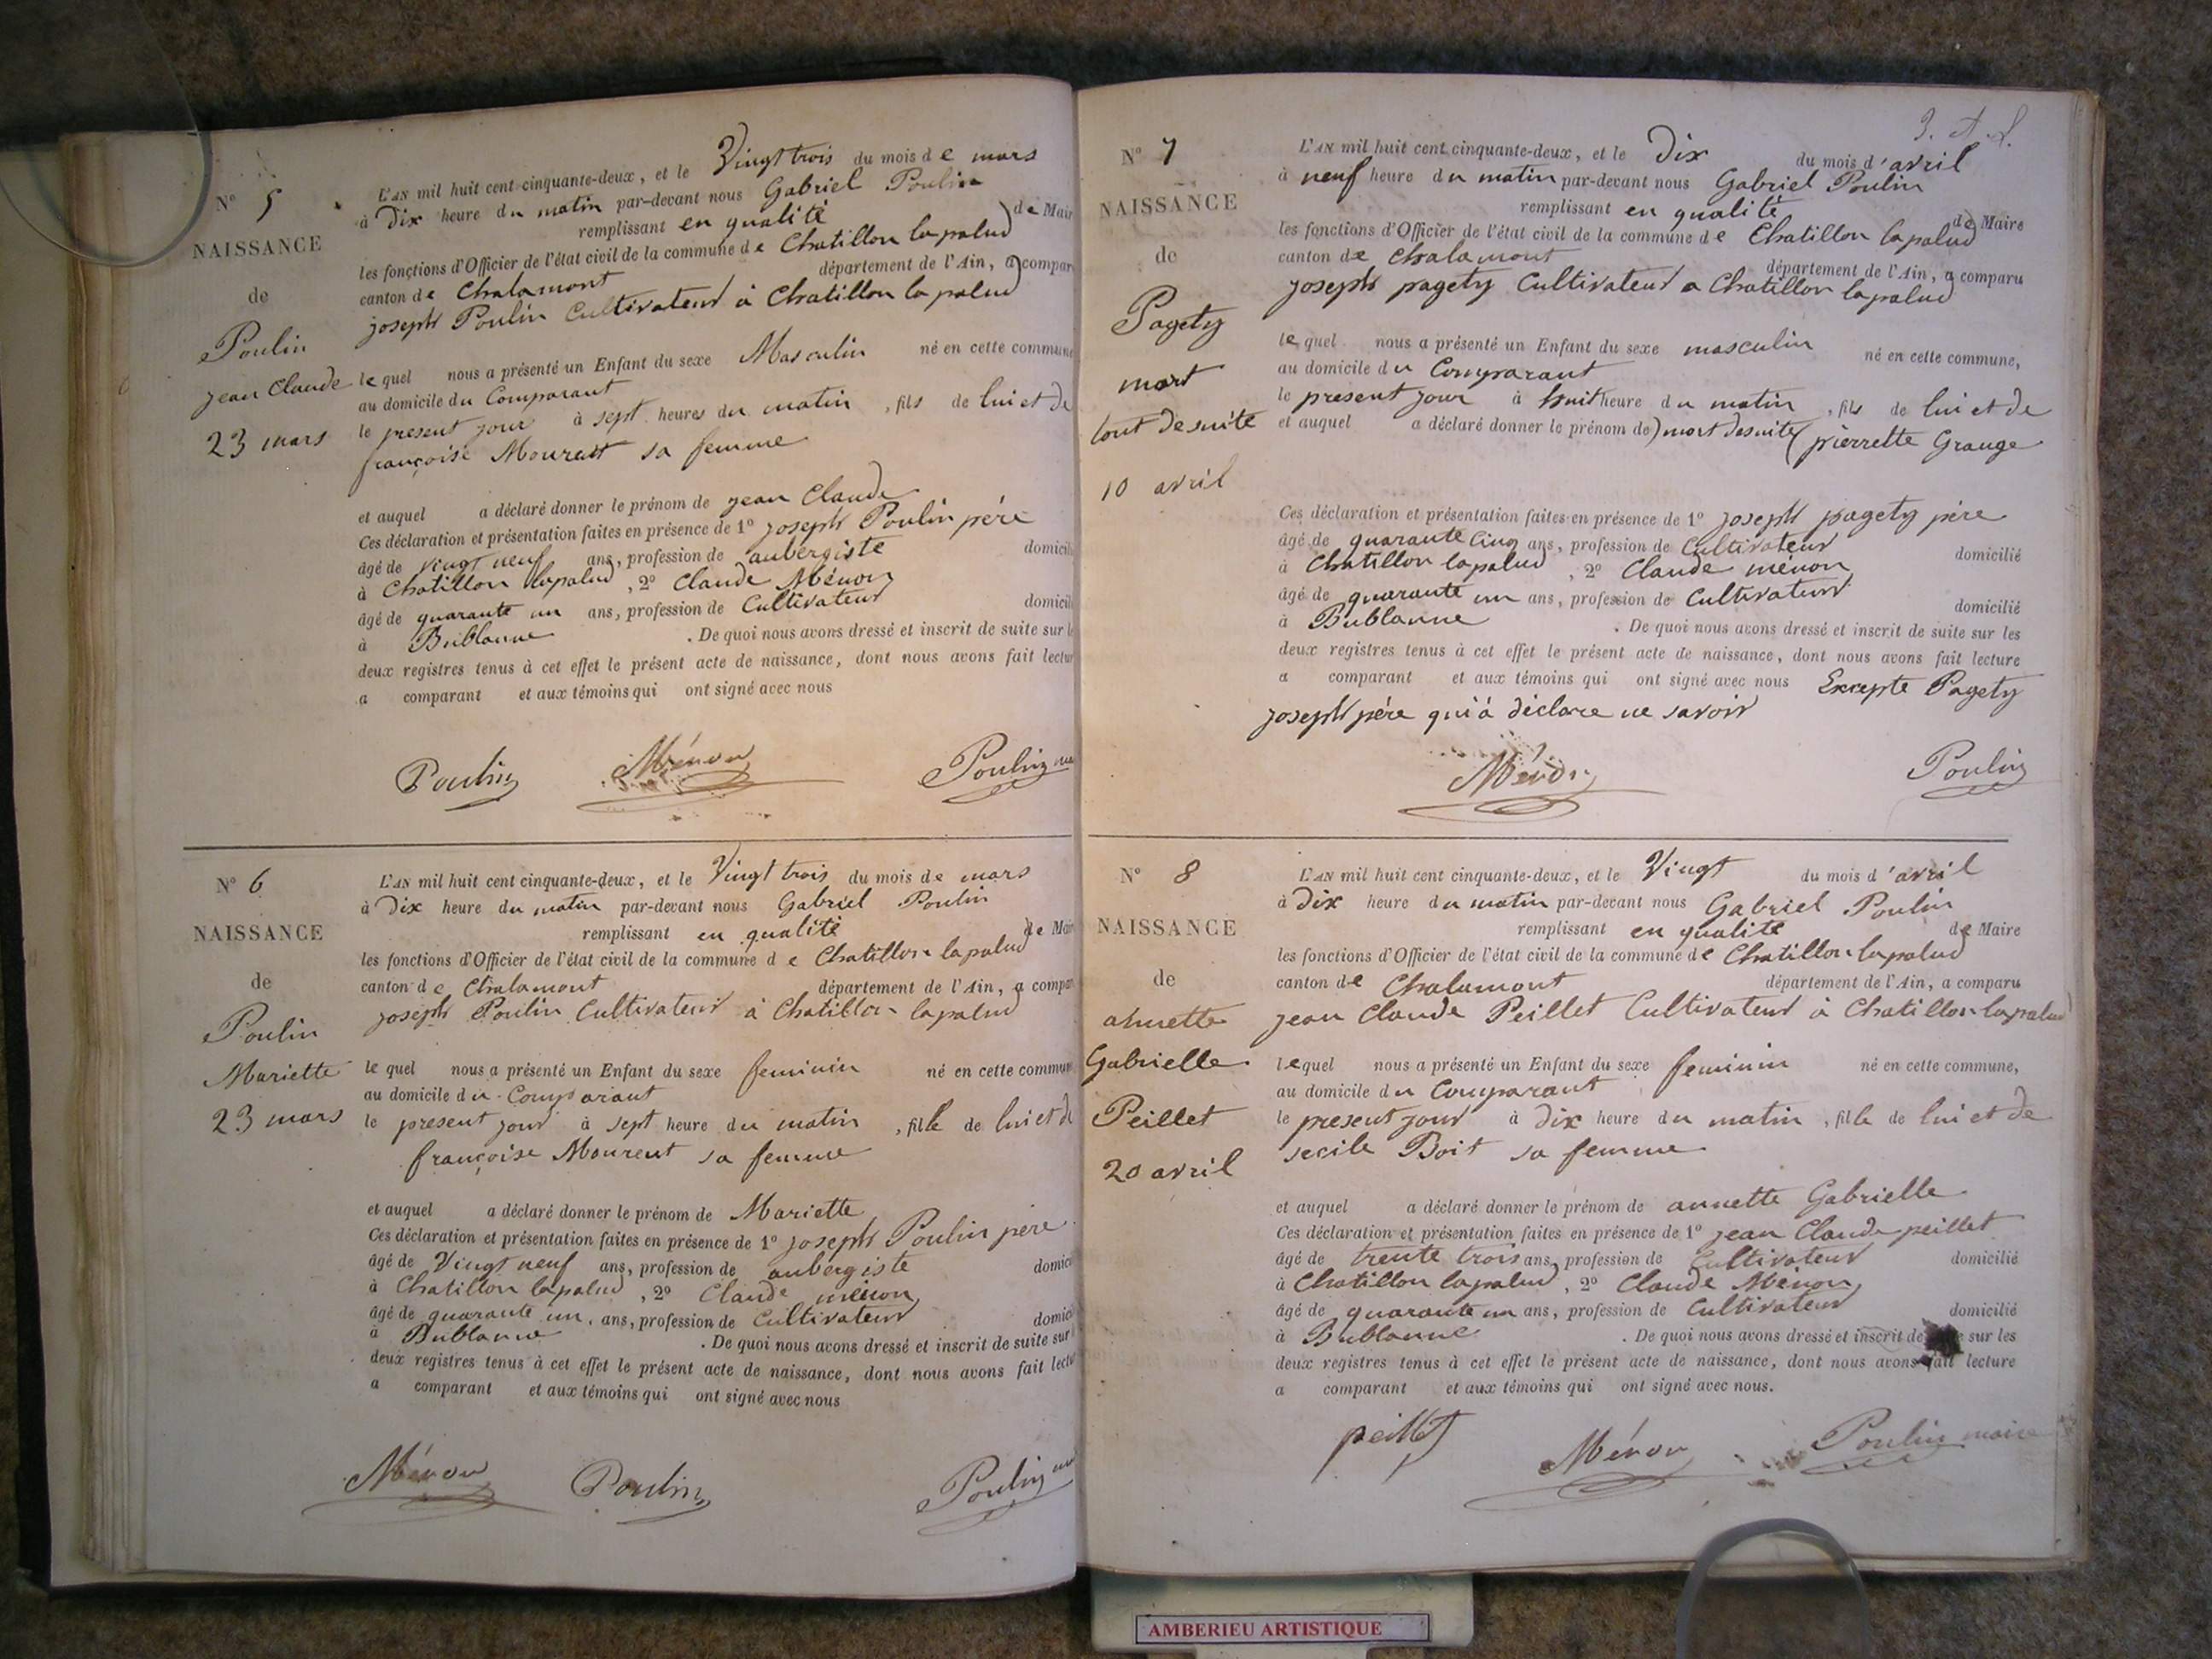 N° 5
NAISSANCE
de
Poulin
jean Claude
23 mars
L'AN mil huit cent cinquante-deux, et le Vingt trois du mois de mars
à Dix heure du matin par-devant nous Gabriel Poulin
remplissant en qualité de Mair
les fonctions d'Officier de l'état civil de la commune de Chatillon lapalud
canton de Chalamont département de l'Ain, a compar
joseph Poulin Cultivateur à Chatillon lapalud
le quel nous a présenté un Enfant du sexe Masculin né en cette commune
au domicile du Comparant
le present jour à sept heures du matin , fils de lui et de
françoise Mourent sa femme
et auquel a déclaré donner le prénom de jean Claude
Ces déclaration et présentation faites en présence de 1° joseph Poulin père
âgé de vingt neuf ans, profession de aubergiste domicili
à Chatillon lapalud , 2° Claude Ménon
âgé de quarante un ans, profession de Cultivateur domicili
à Bublanne . De quoi nous avons dressé et inscrit de suite sur le
deux registres tenus à cet effet le présent acte de naissance, dont nous avons fait lectur
a comparant et aux témoins qui ont signé avec nous
Poulin Ménon Poulin
N° 6
NAISSANCE
de
Poulin
Mariette
23 mars
L'AN mil huit cent cinquante-deux, et le Vingt trois du mois de mars
à Dix heure du matin par-devant nous Gabriel Poulin
remplissant en qualité de Mair
les fonctions d'Officier de l'état civil de la commune de Chatillon lapalud
canton de Chalamont département de l'Ain, a compar
joseph Poulin Cultivateur à Chatillon lapalud
le quel nous a présenté un Enfant du sexe feminin né en cette commun
au domicile du Comparant
le present jour à sept heure du matin , fille de lui et de
françoise Mourent sa femme
et auquel a déclaré donner le prénom de Mariette
Ces déclaration et présentation faites en présence de 1° joseph Poulin père
âgé de Vingt neuf ans, profession de aubergiste domici
à Chatillon lapalud , 2° Claude ménon
âgé de quarante un ans, profession de Cultivateur domici
à Bublanne . De quoi nous avons dressé et inscrit de suite sur
deux registres tenus à cet effet le présent acte de naissance, dont nous avons fait lectu
a comparant et aux témoins qui ont signé avec nous
Ménon Poulin Poulin
N° 7
NAISSANCE
de
Pagety
mort
tout de suite
10 avril
L'AN mil huit cent cinquante-deux, et le Dix du mois d'avril
à neuf heure du matin par-devant nous Gabriel Poulin
remplissant en qualité de Maire
les fonctions d'Officier de l'état civil de la commune de Chatillon lapalud
canton de Chalamont département de l'Ain, a comparu
joseph pagety Cultivateur a Chatillon lapalud
le quel nous a présenté un Enfant du sexe masculin né en cette commune,
au domicile du Comparant
le present jour à huit heure du matin , fils de lui et de
et auquel a déclaré donner le prénom de) mort desuite (pierrette Grange
Ces déclaration et présentation faites en présence de 1° joseph pagety père
âgé de quarante Cinq ans, profession de Cultivateur domicilié
à Chatillon lapalud , 2° Claude ménon
âgé de quarante un ans, profession de Cultivateur domicilié
à Bublanne . De quoi nous avons dressé et inscrit de suite sur les
deux registres tenus à cet effet le présent acte de naissance, dont nous avons fait lecture
a comparant et aux témoins qui ont signé avec nous Excepte Pagety
joseph père qui à déclare ne savoir
Ménon Poulin
N° 8
NAISSANCE
de
annette
Gabrielle
Peillet
20 avril
L'AN mil huit cent cinquante-deux, et le Vingt du mois d'avril
à Dix heure du matin par-devant nous Gabriel Poulin
remplissant en qualité de Maire
les fonctions d'Officier de l'état civil de la commune de Chatillon lapalud
canton de Chalamont département de l'Ain, a comparu
jean Claude Peillet Cultivateur à Chatillon lapalud
lequel nous a présenté un Enfant du sexe feminin né en cette commune,
au domicile du Comparant
le present jour à Dix heure du matin , fille de lui et de
secile Boit sa femme
et auquel a déclaré donner le prénom de annette Gabrielle
Ces déclaration et présentation faites en présence de 1° jean Claude peillet
âgé de trente trois ans, profession de Cultivateur domicilié
à Chatillon lapalud , 2° Claude Ménon
âgé de quarante un ans, profession de Cultivateur domicilié
à Bublanne . De quoi nous avons dressé et inscrit de sur les
deux registres tenus à cet effet le présent acte de naissance, dont nous avons fait lecture
a comparant et aux témoins qui ont signé avec nous.
peillet Ménon Poulin maire
AMBERIEU ARTISTIQUE